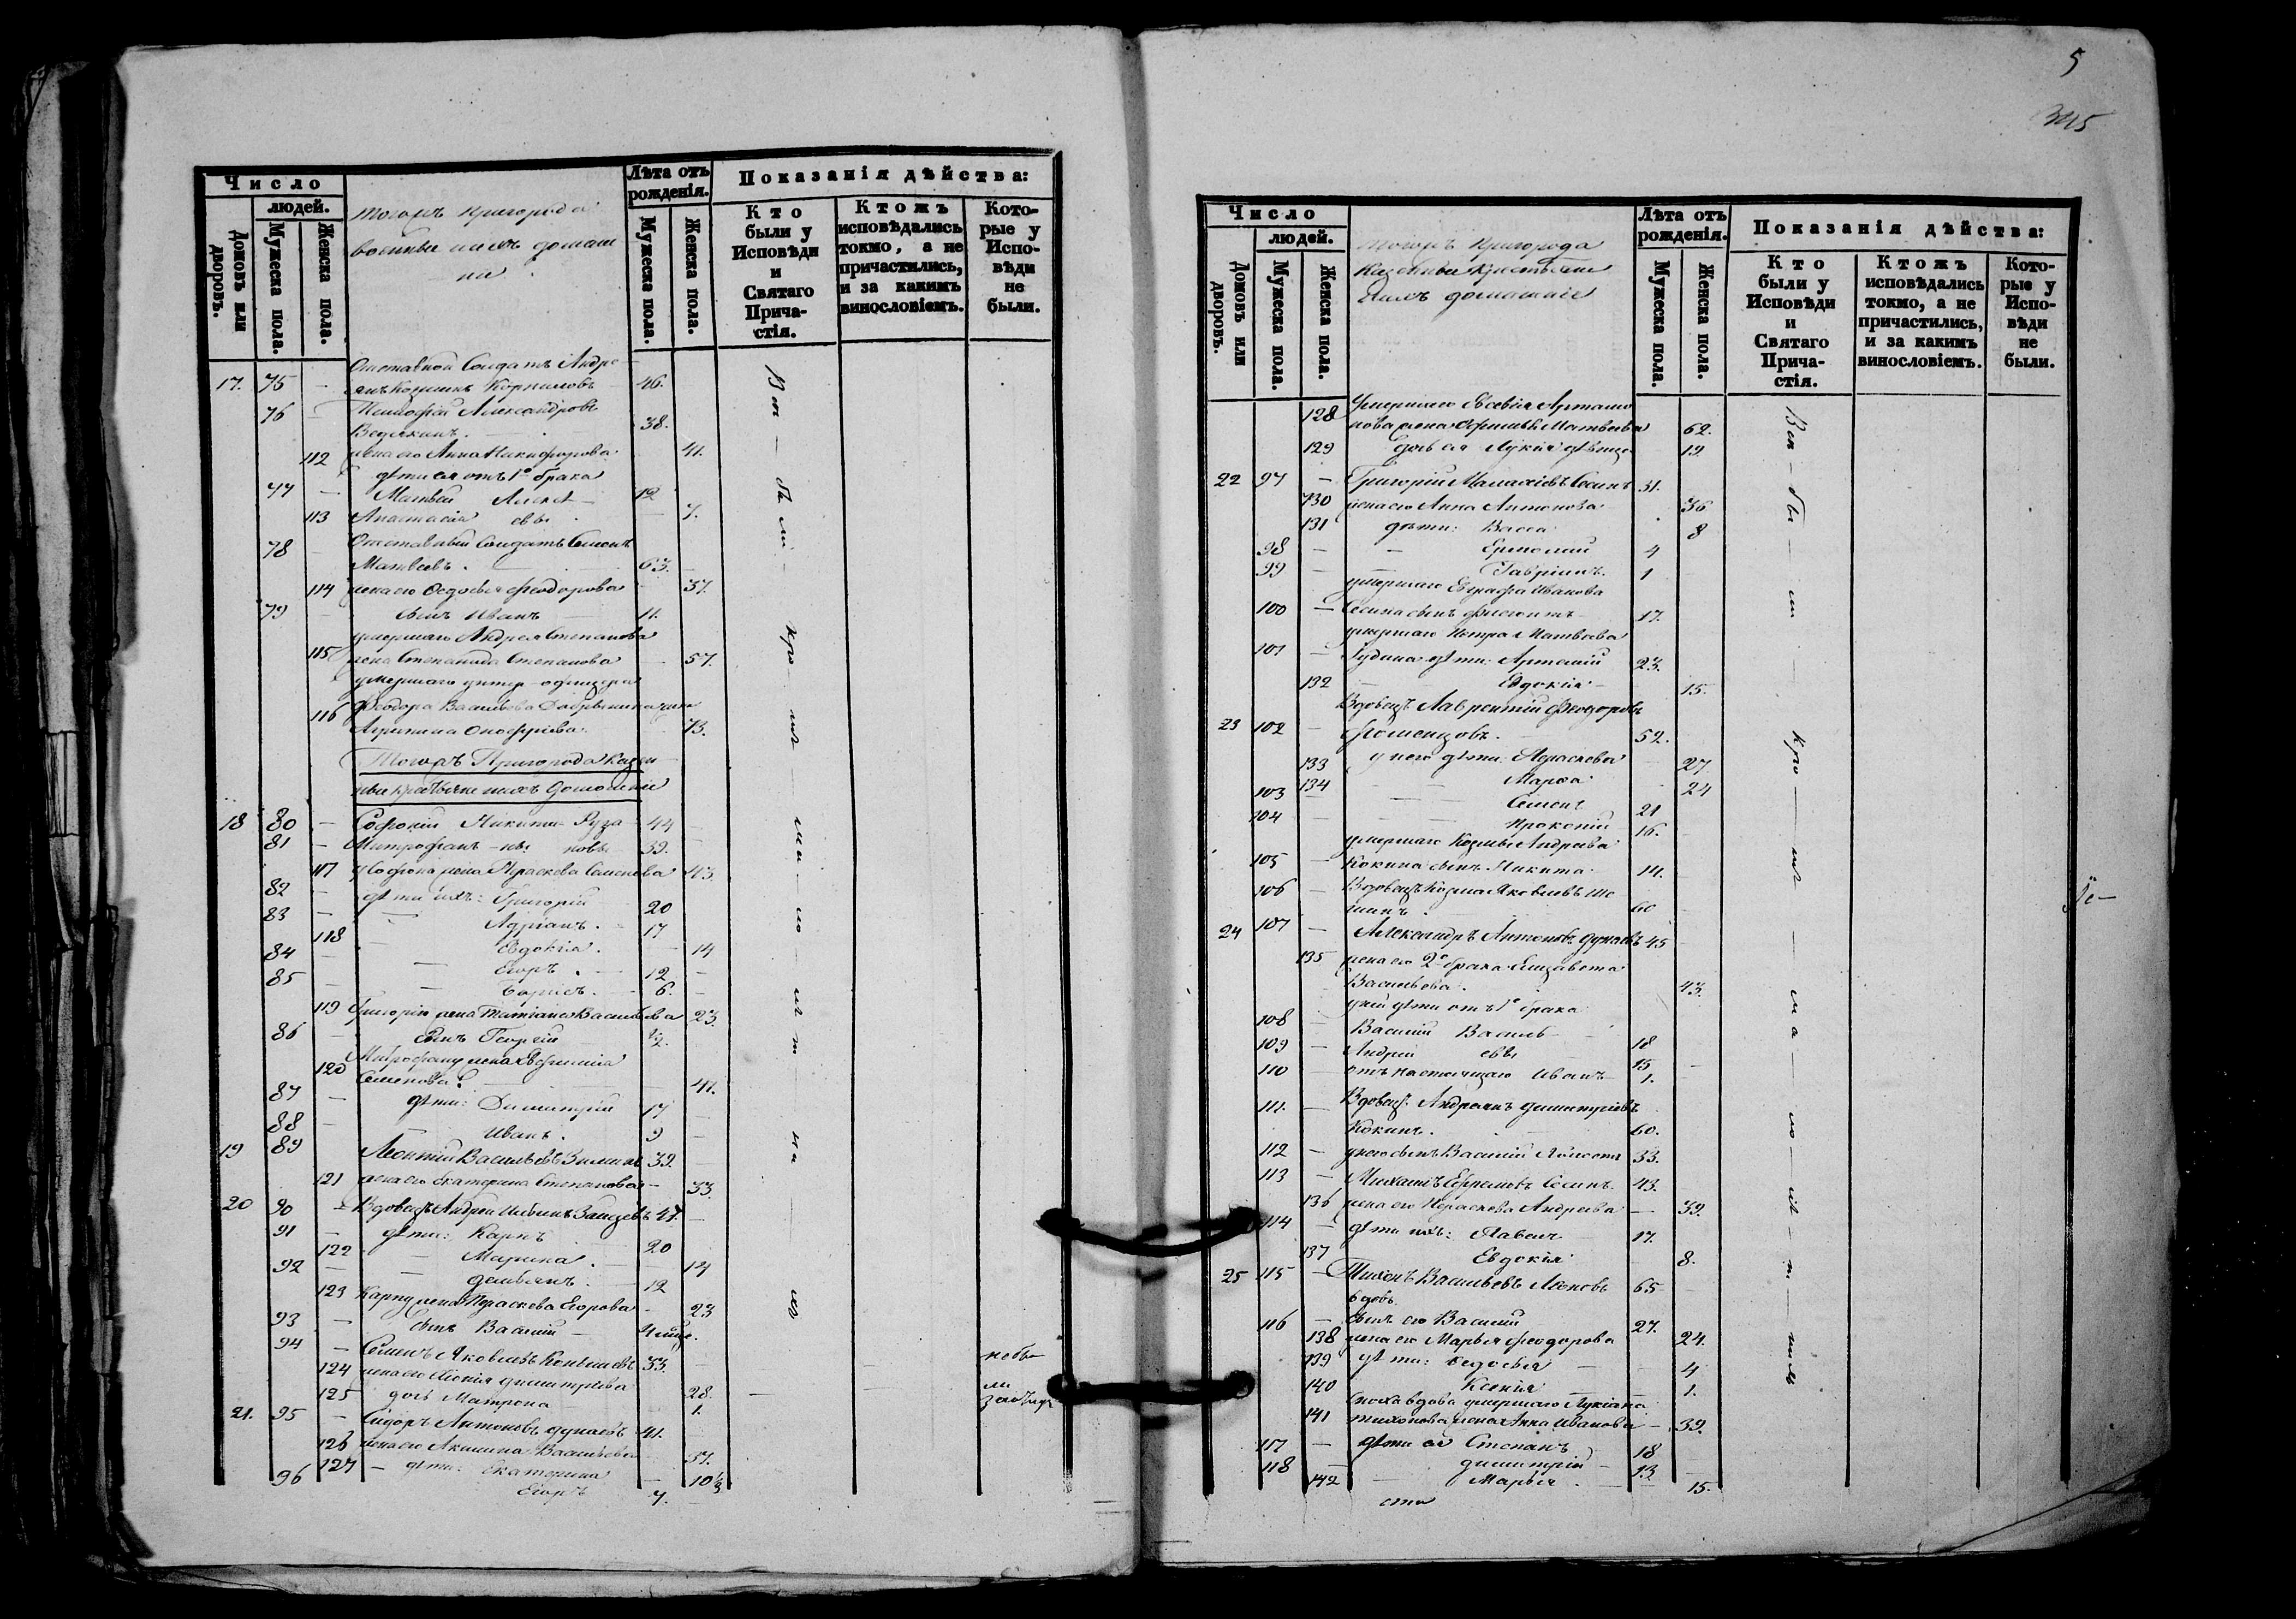 5
345
Число
людей.
Домовъ или дворовъ.
Мужеска пола.
Женска пола.
тогожъ пригорода
военные и ихъ домаш
не
Лѣта отъ рожденія.
Мужеска пола.
Женска пола.
Показанія дѣйства:
Кто были у Исповѣди и Святаго Прича-стія.
Ктожъ исповѣдались токмо, а не причастились, и за какимъ винословіемъ.
Кото-рые у Испо-вѣди не были.
Отставной Солдатъ Андре
17. 75 - Корниловъ 46.
76 - Тимофей Александровъ
38.
112 жена его Анна Никифорова 41.
дѣти ея отъ 1го брака
77 - Матвей Алекс 12
113 Анастасія евы 7.
78 Отставный Солдатъ Семенъ
Матвеевъ. 63.
114 жена его Федосья Феодорова 37.
79 сынъ Иванъ 11.
умершаго Андрея Степанова
115 жена Степанида Степанова 57.
умершаго унтер-офицера
116 Феодора Васильева жена
Агрипина Онофріева 73.
Тогожъ Пригорода казен
ные крестьяне и ихъ домашніе
18 80 - Софроній Никити Руза 44
81 - Митрофанъ ны новы 39.
117 у Софрона жена Параскева Семенова 43.
82 - дѣти ихъ: Григорій 20
83 - Адріанъ. 17
118 Евдокія. 14
84 - Егоръ. 12
85 - Борисъ. 6.
119 Григорію жена Татіана Васильева 23.
86 - сынъ Георгій 1/2.
Митрофану жена Евфимія
120 Семенова. 41.
87 - дѣти: Димитрій 17
88 - Иванъ. 9
19 89 Леонтій Васильевъ Зиминъ 39.
121 жена его Екатерина Степановая 33.
20 90 - Вдовецъ Андрей Ильинъ Зайцевъ 47.
91 - дѣти: Карпъ 20
122 - Марина. 14
92 - Демьянъ. 12
123 Карпу жена Параскева Егорова 23
93 - сынъ Василій
94 - Семенъ Яковлевъ 33.
124 жена его Ксенія Димитріева 28.
125 дочь Матрона 1.
не бы
ли
21. 95 - Сидоръ Антоновъ Дунаевъ 41.
126 жена его Акилина Васильева 37.
127 - дѣти: Екатерина 10½
96 Егоръ 7.
Число
людей.
Домовъ или дворовъ.
Мужеска пола.
Женска пола.
тогожъ Пригорода
Казенные крестьяне
и ихъ домашніе
Лѣта отъ рожденія.
Мужеска пола.
Женска пола.
Показанія дѣйства:
Кто были у Исповѣди и Святаго Прича-стія.
Ктожъ исповѣдались токмо, а не причастились, и за какимъ винословіемъ.
Кото-рые у Испо-вѣди не были.
128 умершаго Евсевія Артамо
нова жена Матвеева 62.
129 дочь ея Лукія дѣвица 19
22 97 - Григорій Малахіевъ Сосинъ 31.
130 жена его Анна Антонова 36
131 дѣти: Васса 8
98 - Ермолай 4
99 - Гавріилъ. 1
умершаго Евграфа Иванова
100 - Сосина сынъ 17.
умершаго Петра Матвеева
101 - Гудина дѣти: Артемій 23.
132 Евдокія 15.
Вдовецъ Лаврентій Феодоровъ
23 102 - Фоменцовъ. 52.
133 у него дѣти: Параскева 27
134 Марѳа 24
103 Семенъ 21
104 Прокопій 16.
умершаго Козмы Андреева
105 - Кокина сынъ Никита 14.
106 - Вдовецъ Козма Яковлевъ Ше
шинъ. 60
24 107 - Александръ Антоновъ Дунаевъ 45
135 жена его 2го брака Елизавета
Васильева. 43.
у ней дѣти отъ 1го брака
108 - Василій Василь 18
109 - Андрей евы 15
110 отъ настоящаго Иванъ 1.
111. - Вдовецъ Андреянъ Димитріевъ
Кокинъ. 60.
112 - у него сынъ Василій 33.
113 - Михаилъ Ефремовъ Сосинъ 43.
136 жена его Параскева Андреева 39.
114 - дѣти ихъ: Павелъ 17.
137 Евдокія 8.
25 115 - Тихонъ Васильевъ 65
вдовъ.
116 - сынъ его Василій 27.
138 жена его Марья Феодорова 24.
139 дѣти: Федосья 4
140 Ксенія 1.
Сноха вдова умершаго Лукіана
141 Тихонова жена Анна Иванова 39.
117 - дѣти ея Степанъ 18
118 Димитрій 13
142 Марья 15.